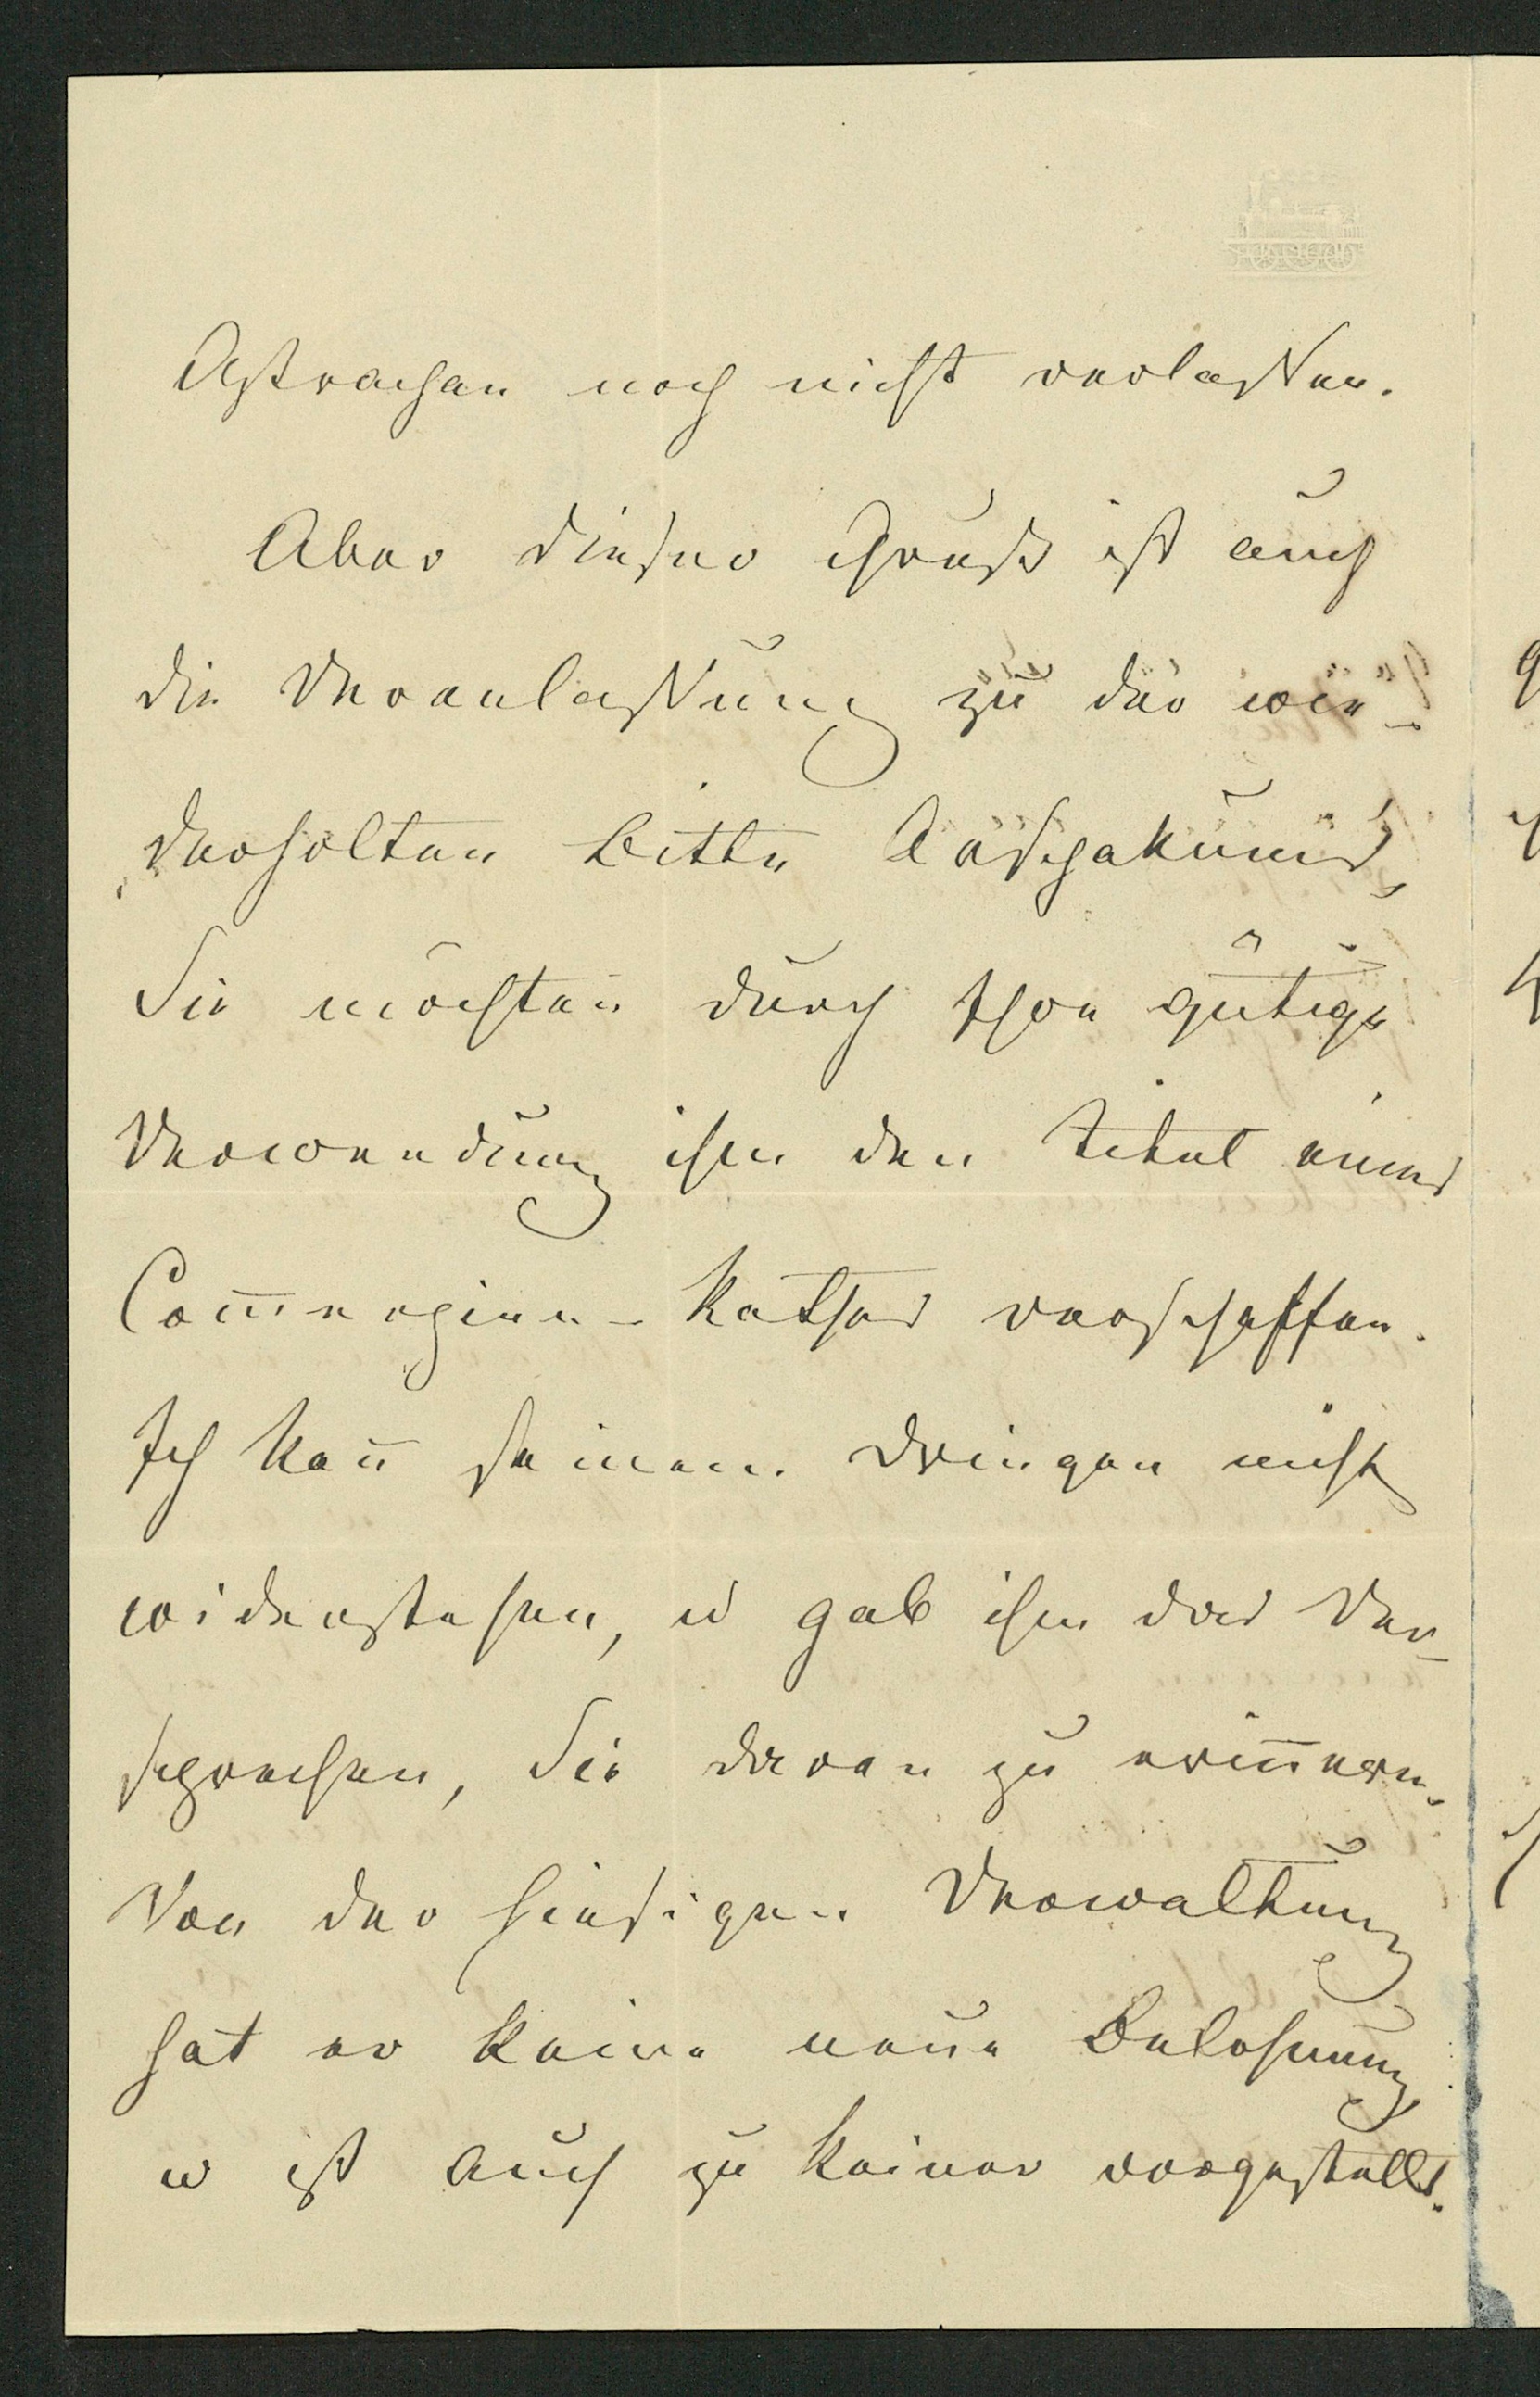 Astrachan noch nicht verlassen.
Aber dieser Gruß ist auch
die Veranlassung zu der wie-
derholten Bitte
Sie möchten durch Ihre gütige
Verwendung ihm den Titel eines
Com̅erzien-Rathes verschaffen.
Ich kan̅ seinem Dringen nicht
widerstehen, u gab ihm das Ver-
sprechen, Sie daran zu erin̅ern.
Von der hiesigen Verwaltung
hat er keine neue Belohnung
u ist auch zu keiner vorgestellt.